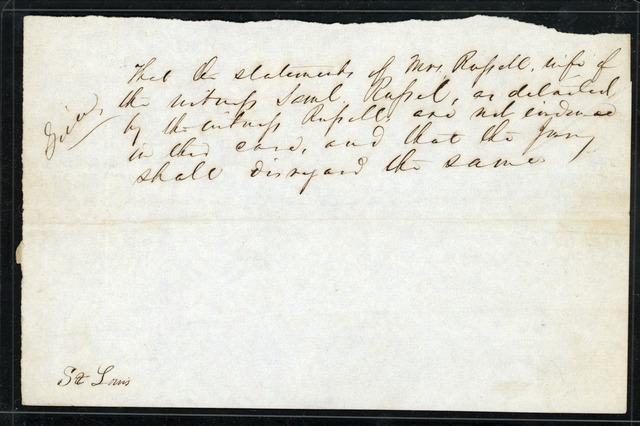 That the statements of Mrs. Russell, wife of
the witness Saml Russel, as detailed
by the witness Russell, are not evidence
in this case, and that the jury
shall disregard the same
Given
St Louis